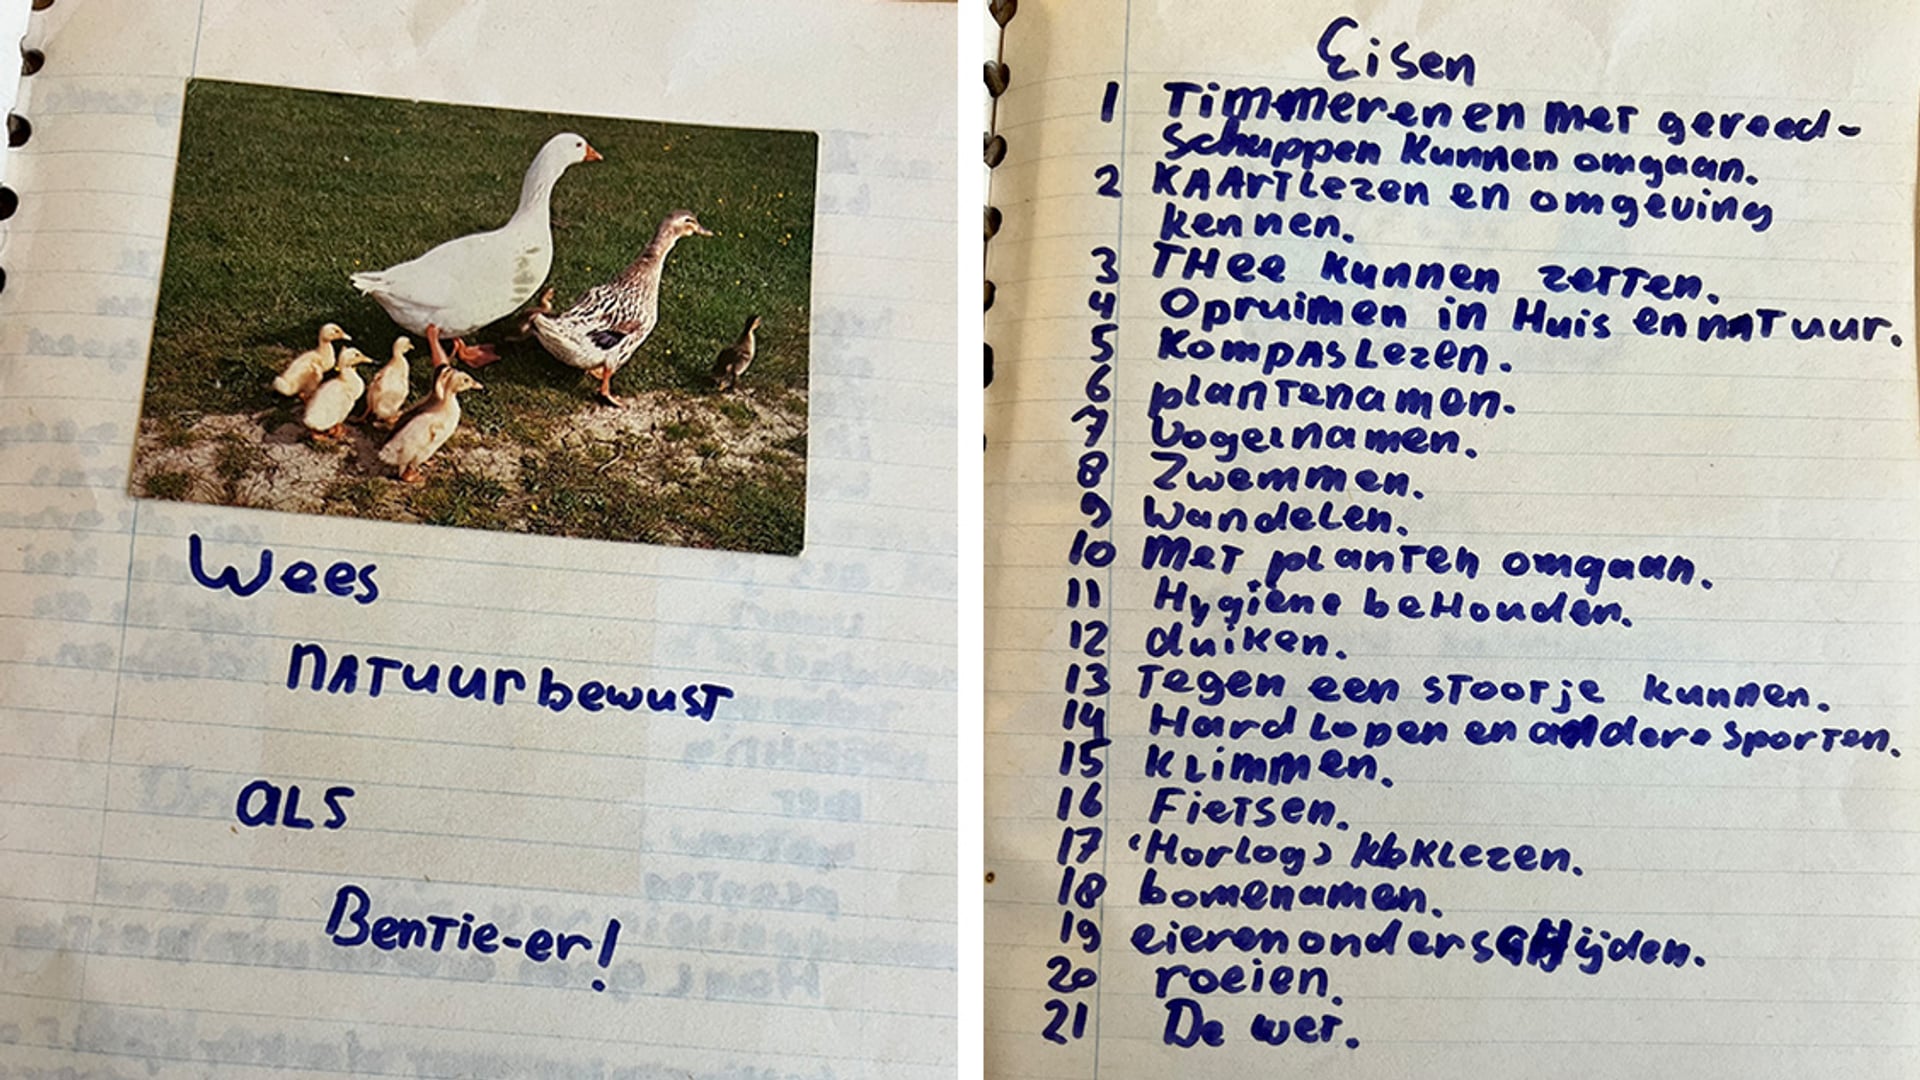 Wees
NATuurbewusT
ALS
BenTie-er!
Eisen
1 Timmeren en meT gereed-
schappen kunnen omgaan.
2 KAArTLezen en omgeving
kennen.
3 THee kunnen zeTTen.
4 Opruimen in Huis en nATuur.
5 KompAsLezen.
6 planTenamen.
7 Vogelnamen.
8 Zwemmen.
9 WandeLen.
10 meT pLanTen omgaan.
11 Hygiëne beHouden.
12 duiken.
13 Tegen een sTooTje kunnen.
14 HardLopen en andere sporTen.
15 KLimmen.
16 FieTsen.
17 (Horlog) kLokLezen.
18 bomenamen.
19 eieren onderscHijden.
20 roeien.
21 De weT.